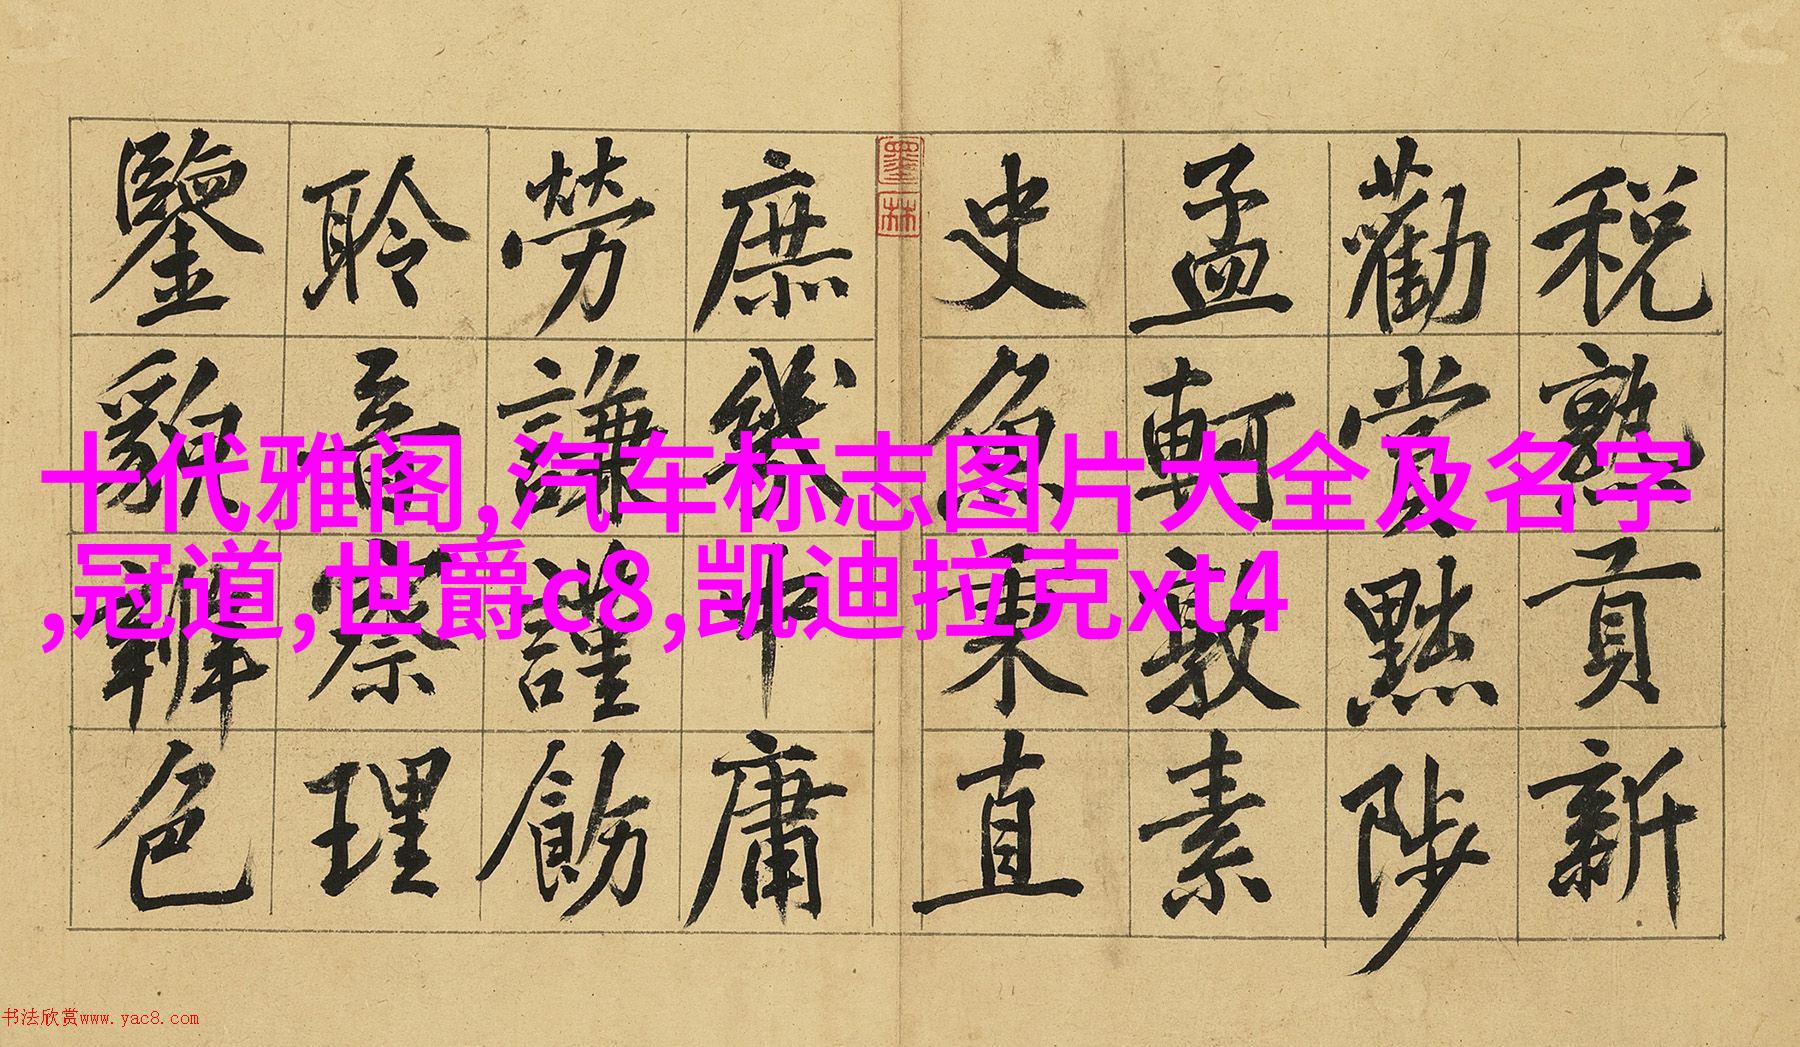 税熟貢新
勸賞黜陟
孟軻敦素
史魚秉直
庶幾中庸
勞謙謹飭
聆音察理
鑒貌辨色
墨林
十代雅阁,汽车标志图片大全及名字
,冠道,世爵c8,凯迪拉克xt4
书法欣赏www.yac8.com